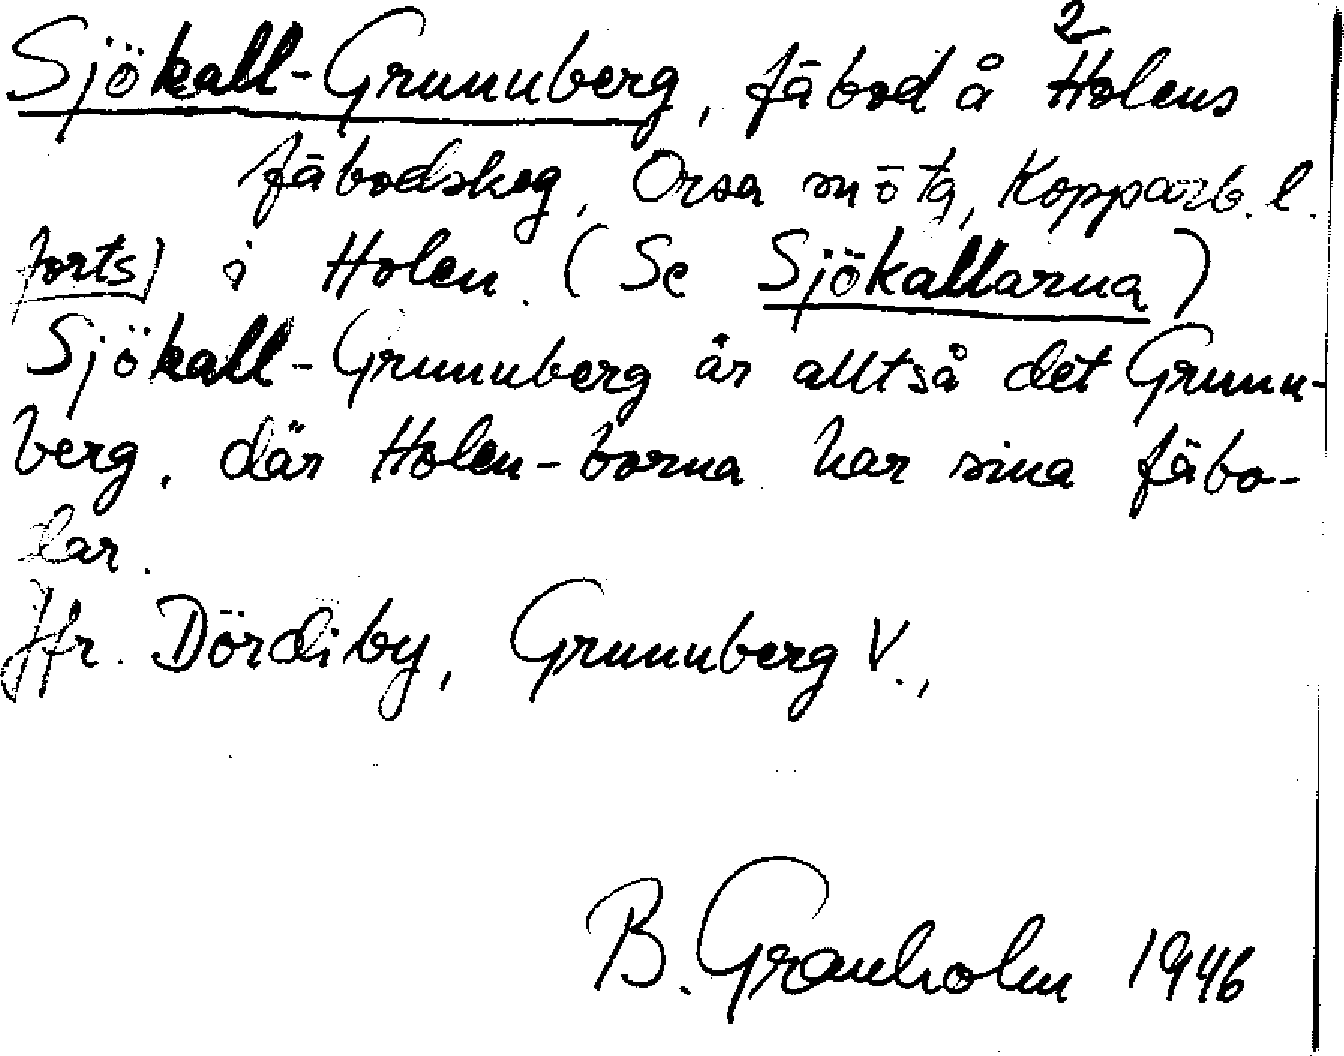 2
Sjökall-Grunuberg, fäbod å Holens
fäbodskog, Orsa sn ö tg, Kopparb. l.
forts) i Holen. (Se Sjökallarna)
Sjökall-Grunuberg är alltså det Grunu-
berg, där Holen-borna har sina fäbo-
dar.
Jfr. Dördiby, Grunuberg V.,
B. Granholm 1946